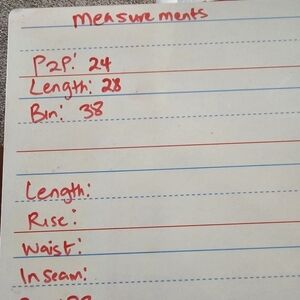 measurements
P2P: 24
Length: 28
Bin: 38
Length:
Rise:
Waist:
Inseam: